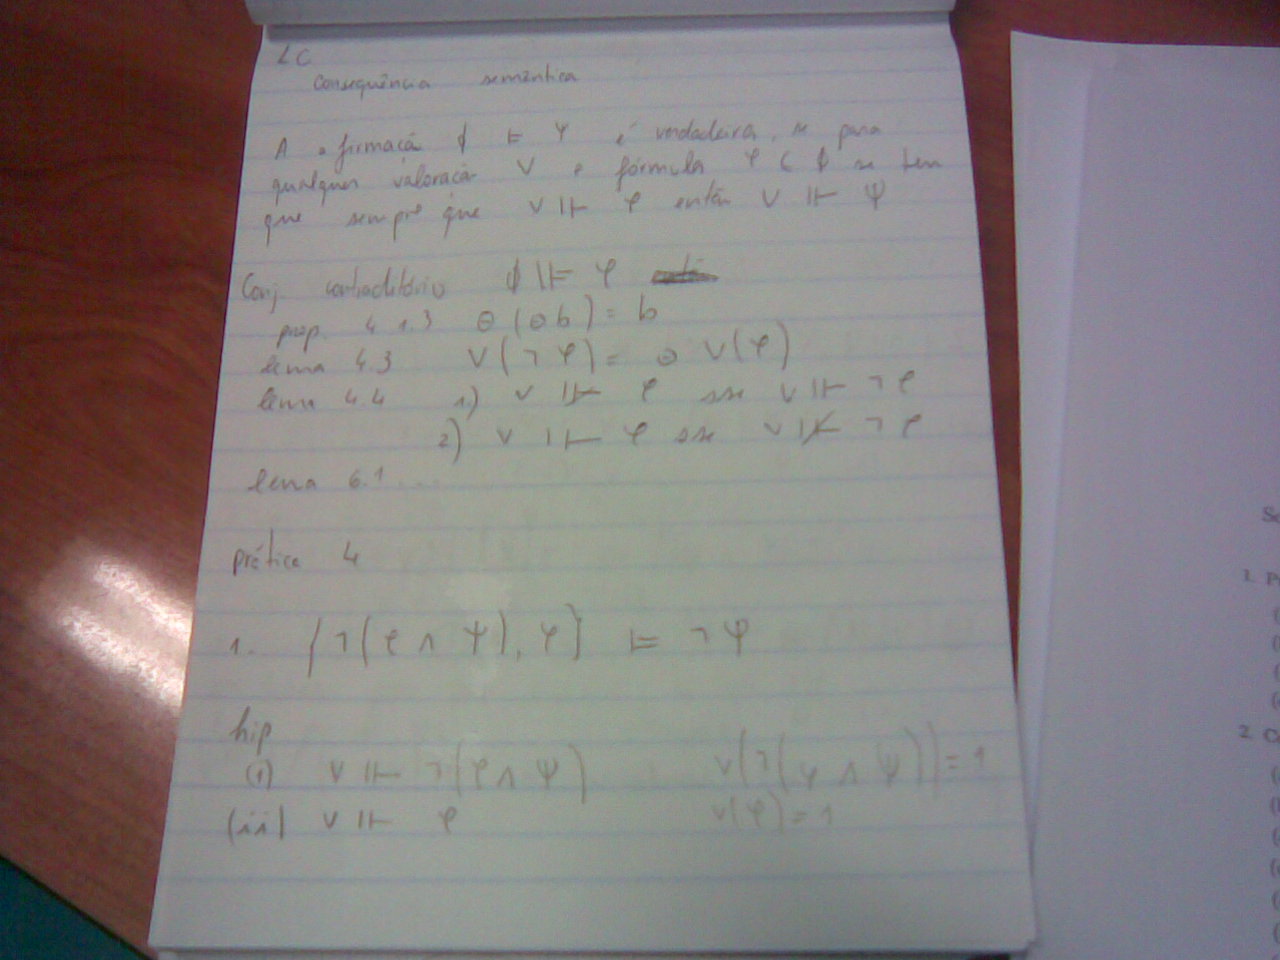 LC
Consequência semântica
A afirmação ϕ ⊨ ψ é verdadeira, se para
qualquer valoração V e fórmula φ ⊂ ϕ se tem
que sempre que V ⊩ φ então V ⊩ ψ
Conj. contraditório ϕ ⊫ φ
prop. 4.1.3 ⊖(⊖b) = b
lema 4.3 V(¬φ) = ⊖ V(φ)
lema 4.4 1) V ⊮ φ sse V ⊩ ¬φ
2) V ⊩ φ sse V ⊮ ¬φ
lema 6.1 ....
prática 4
1. {¬(φ ∧ ψ), φ} ⊨ ¬ψ
hip
(i) V ⊩ ¬(φ ∧ ψ) V(¬(φ ∧ ψ)) = 1
(ii) V ⊩ φ V(φ) = 1
1. P
2. C